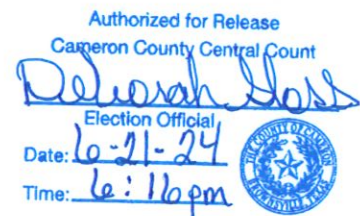 Authorized for Release
Cameron County Central Count
Deborah Goss
Election Official
Date: 6-21-24
Time: 6:16pm
THE COUNTY OF CAMERON
BROWNSVILLE, TEXAS